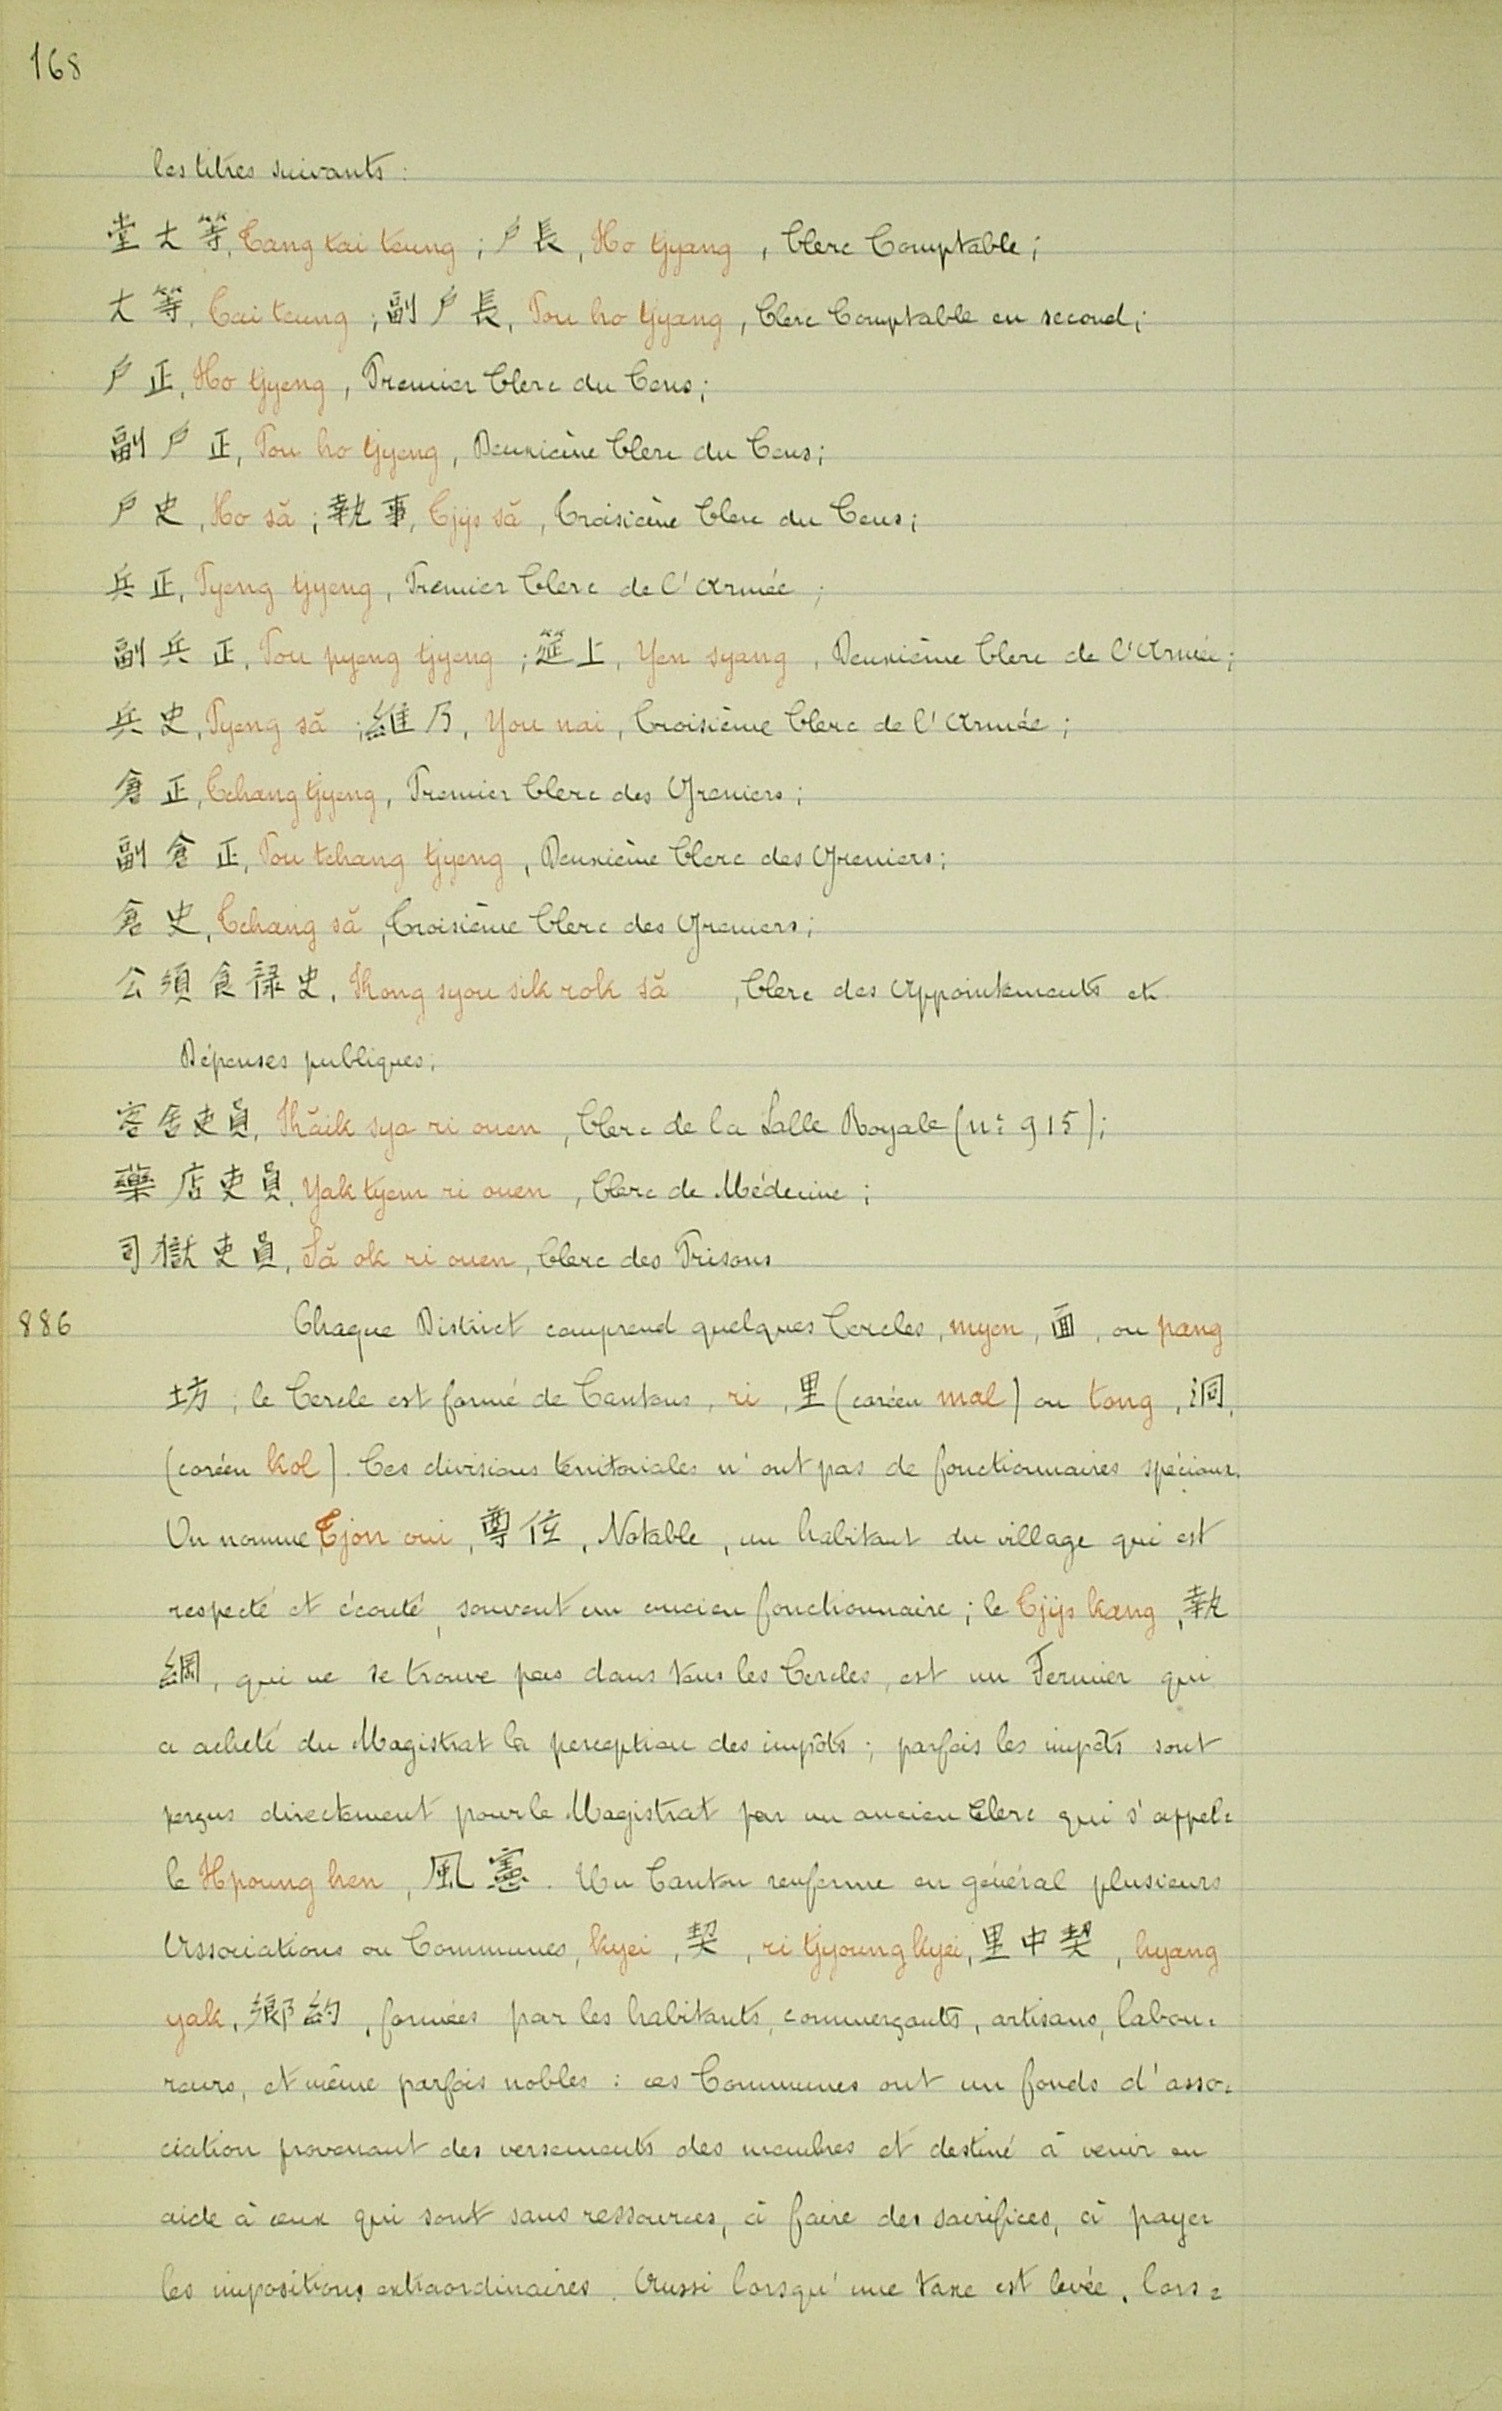 168
les titres suivants :
堂大等, Tang tai teung ; 戶長, Ho tjyang, Clerc Comptable ;
大等, Tai teung ; 副戶長, Pou ho tjyang, Clerc Comptable en second ;
戶正, Ho tjyeng, Premier Clerc du Cens ;
副戶正, Pou ho tjyeng, Deuxième Clerc du Cens ;
戶史, Ho să ; 執事, Tjip să, Troisième Clerc du Cens ;
兵正, Pyeng tjyeng, Premier Clerc de l'Armée ;
副兵正, Pou pyeng tjyeng ; 筵上, Yen syang, Deuxième Clerc de l'Armée ;
兵史, Pyeng să ; 維乃, You nai, Troisième Clerc de l'Armée ;
倉正, Tchang tjyeng, Premier Clerc des Greniers ;
副倉正, Pou tchang tjyeng, Deuxième Clerc des Greniers ;
倉史, Tchang să, Troisième Clerc des Greniers ;
公須食祿史, Kong syou sik rok să, Clerc des Appointements et
Dépenses publiques ;
客舍吏員, Kăik sya ri ouen, Clerc de la Salle Royale (n: 915) ;
藥店吏員, Yak tyem ri ouen, Clerc de Médecine ;
司獄吏員, Să ok ri ouen, Clerc des Prisons
886 Chaque District comprend quelques Cercles, myen, 面, ou pang
坊 ; le Cercle est formé de Cantons, ri, 里 (coréen mal) ou tong, 洞,
(coréen kol). Ces divisions territoriales n'ont pas de fonctionnaires spéciaux.
On nomme Tjon oui, 尊位, Notable, un habitant du village qui est
respecté et écouté, souvent un ancien fonctionnaire ; le Tjip kang, 執
綱, qui ne se trouve pas dans tous les Cercles, est un Fermier qui
a acheté du Magistrat la perception des impôts ; parfois les impôts sont
perçus directement pour le Magistrat par un ancien Clerc qui s'appel=
le Hpoung hen, 風憲. Un Canton renferme en général plusieurs
Associations ou Communes, kyei, 契, ri tjyoung kyei, 里中契, hyang
yak, 鄉約, formées par les habitants, commerçants, artisans, labou=
reurs, et même parfois nobles : ces Communes ont un fonds d'asso=
ciation provenant des versements des membres et destiné à venir en
aide à ceux qui sont sans ressources, à faire des sacrifices, à payer
les impositions extraordinaires. Aussi lorsqu'une taxe est levée, lors=